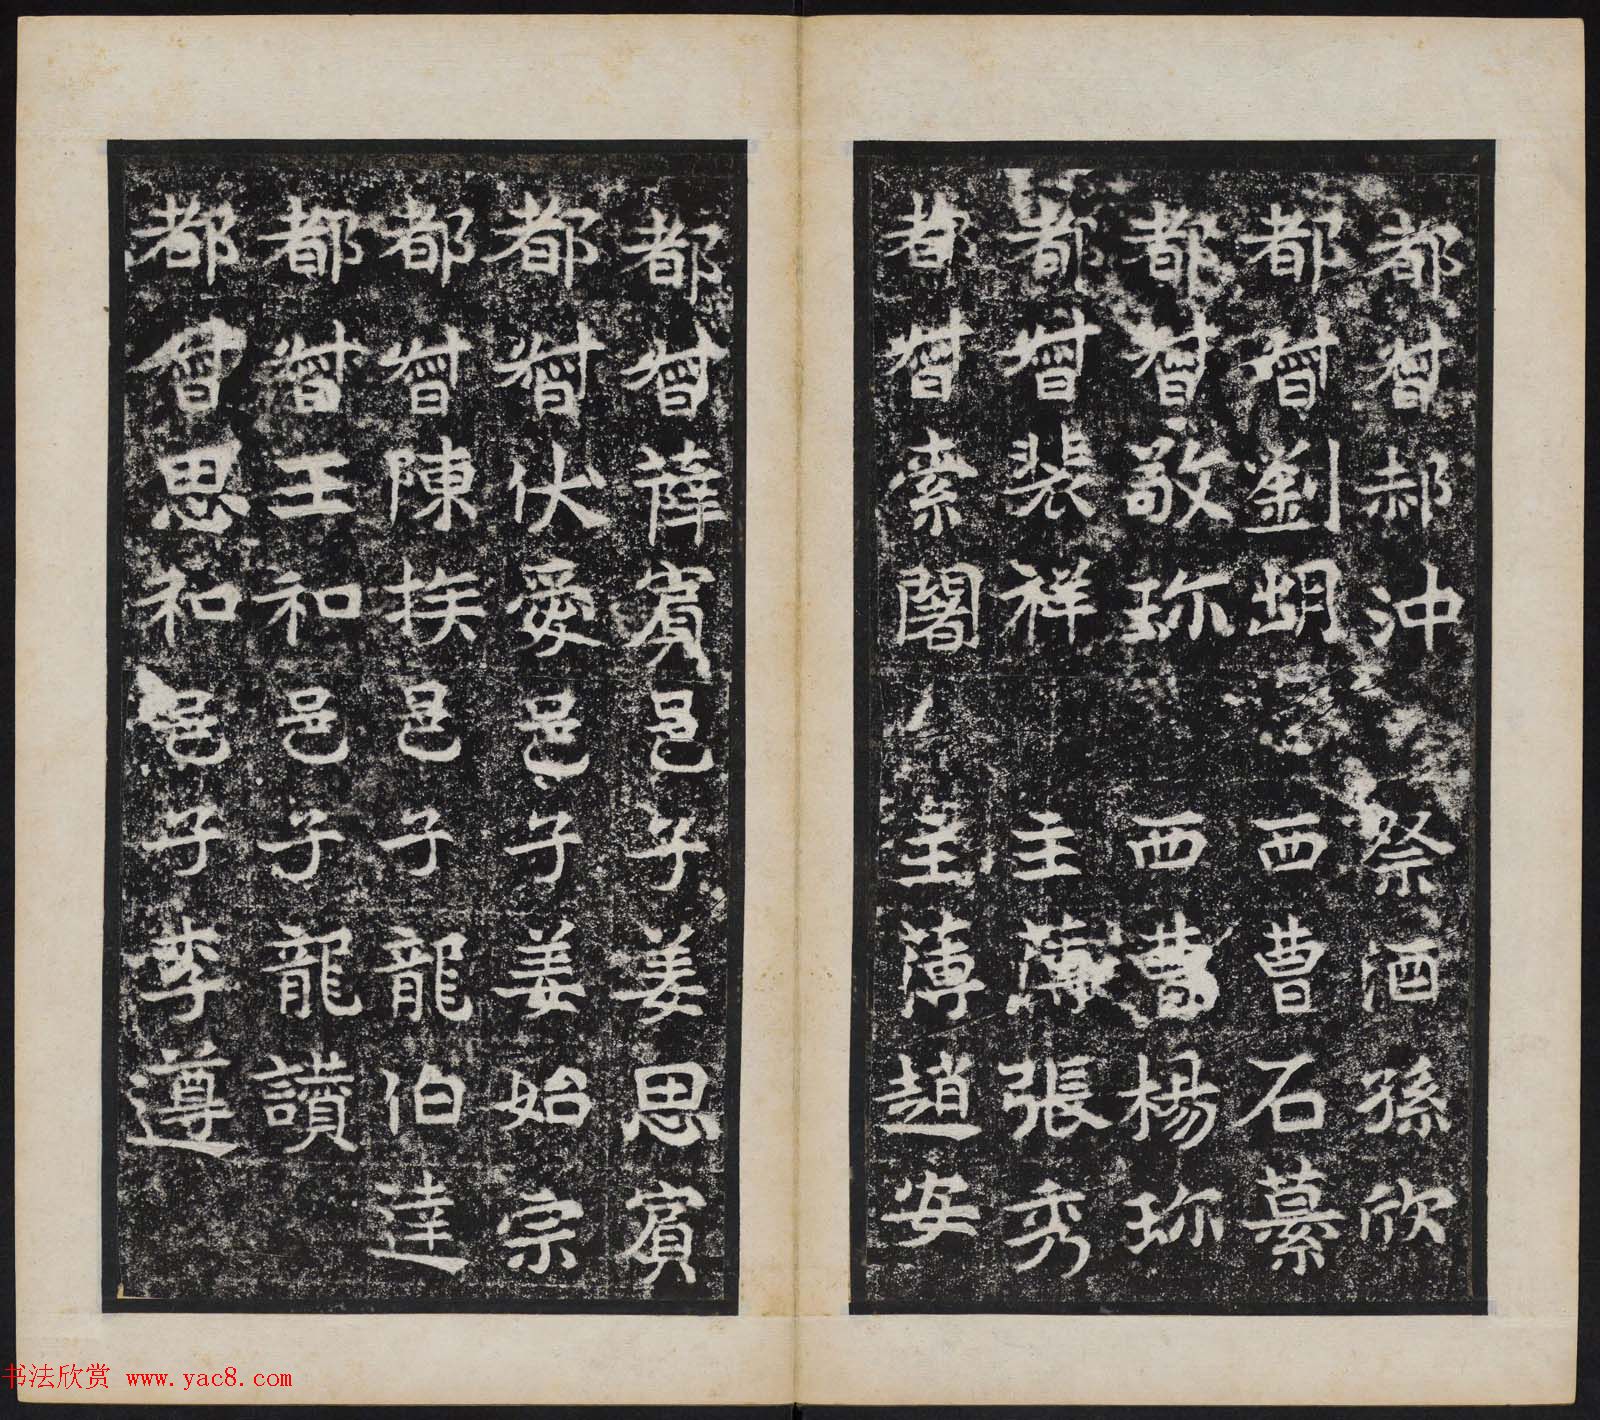 都督郝沖 祭酒孫欣
都督劉 西曹石纂
都督敬珎 西曹楊珎
都督裴祥 主薄張秀
都督索闍 主薄趙安
都督薛賓邑子姜思賓
都督伏愛邑子姜始宗
都督陳族邑子龍伯達
都督王和邑子龍讚
都督思和邑子李遵
书法欣赏 www.yac8.com